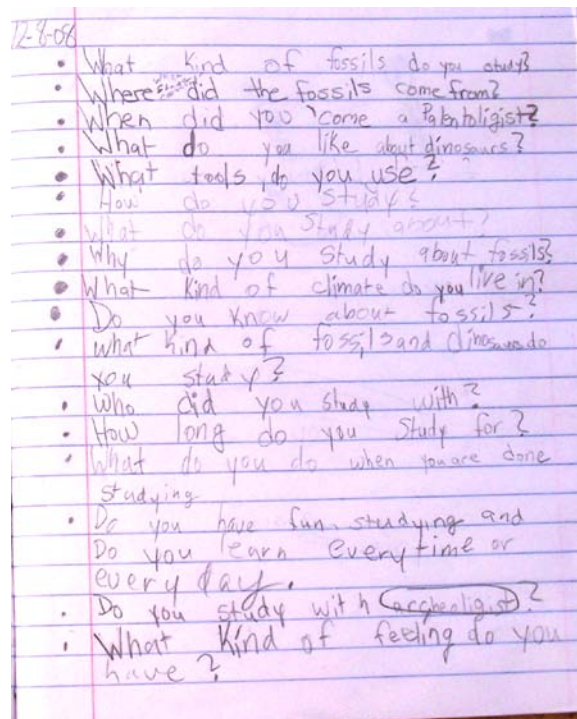 12-8-08
• What kind of fossils do you study?
• Where did the fossils come from?
• When did you come a Palentoligist?
• What do you like about dinosaurs?
• What tools do you use?
• How do you study?
• What do you study about?
• Why do you study about fossils?
• What kind of climate do you live in?
• Do you know about fossils?
• what kind of fossils and dinosaurs do
you study?
• Who did you study with?
• How long do you study for?
• What do you do when you are done
studying
• Do you have fun studying and
Do you learn every time or
every day.
• Do you study with archealigist?
• What kind of feeling do you
have?